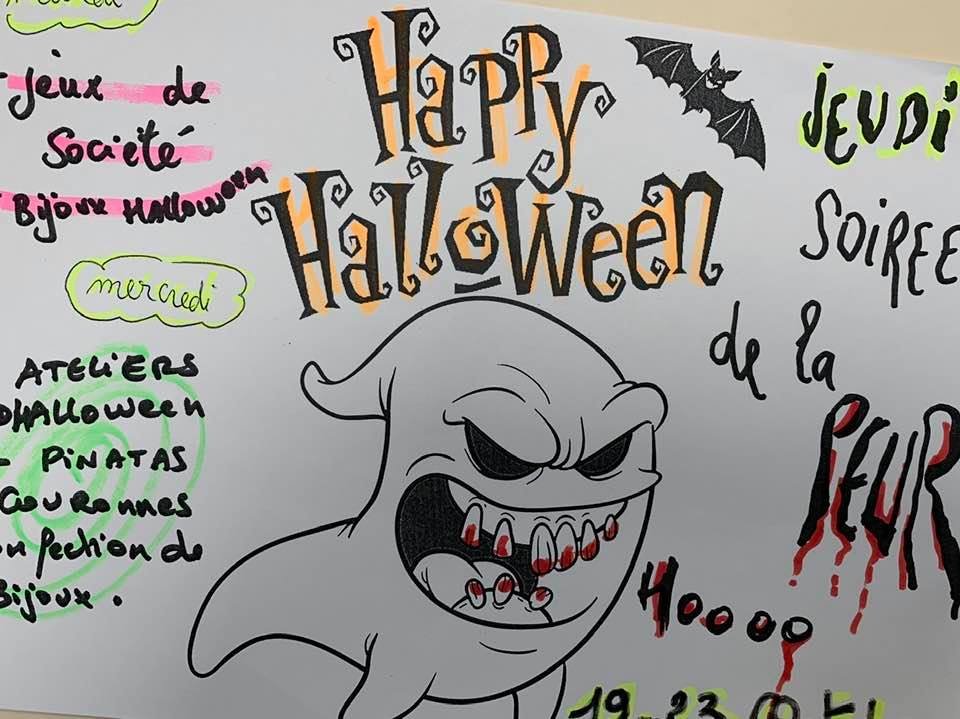 - Jeux de
Société
Bijoux HALLOWeen
mercredi
ATELiERS
DHALLOWeen
- PiNATAS
COURONNES
Bijoux.
Happy
Halloween
JEUDi
SOiREE
de la
PEUR
Hoooo